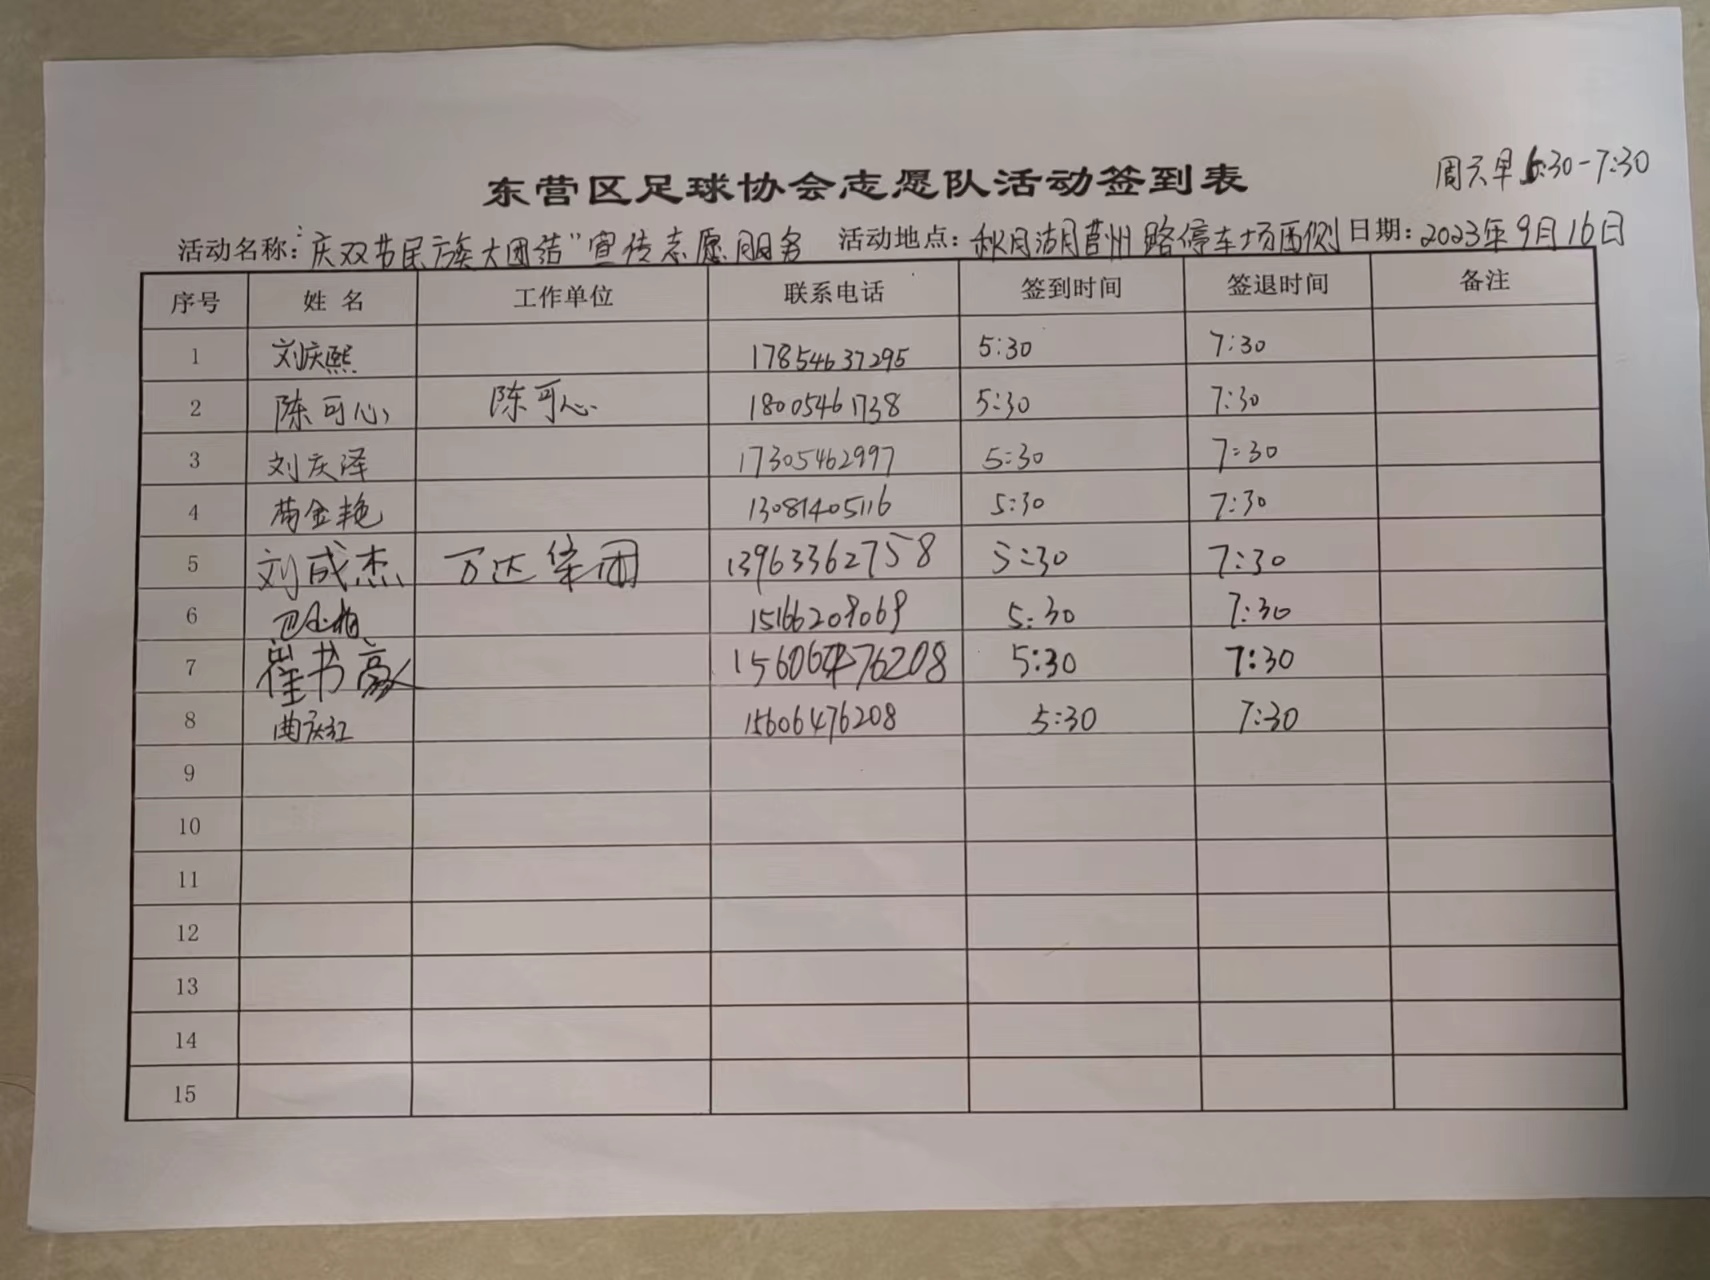 东营区足球协会志愿队活动签到表
周天早 5:30-7:30
活动名称:"庆双节民族大团结"宣传志愿服务 活动地点:秋月湖莒州路停车场西侧 日期:2023年9月16日
序号 姓名 工作单位 联系电话 签到时间 签退时间 备注
1 刘庆熙 17854637295 5:30 7:30
2 陈可心 陈可心 18005461738 5:30 7:30
3 刘庆泽 17305462997 5:30 7:30
4 苟金艳 13081405116 5:30 7:30
5 刘成杰 万达集团 13963362758 5:30 7:30
6 15166209069 5:30 7:30
7 崔书豪 15606476208 5:30 7:30
8 曲庆红 15606476208 5:30 7:30
9
10
11
12
13
14
15